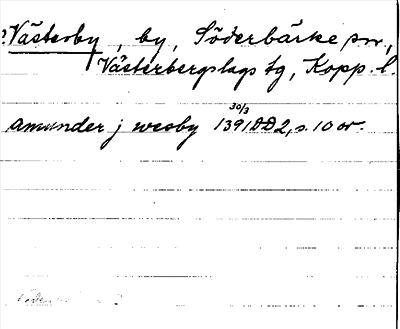 ?Västerby, by, Söderbärke sn,
Västerbergslags tg, Kopp. l.
amunder j wesby 1391 30/3 DD2, s. 10 or.